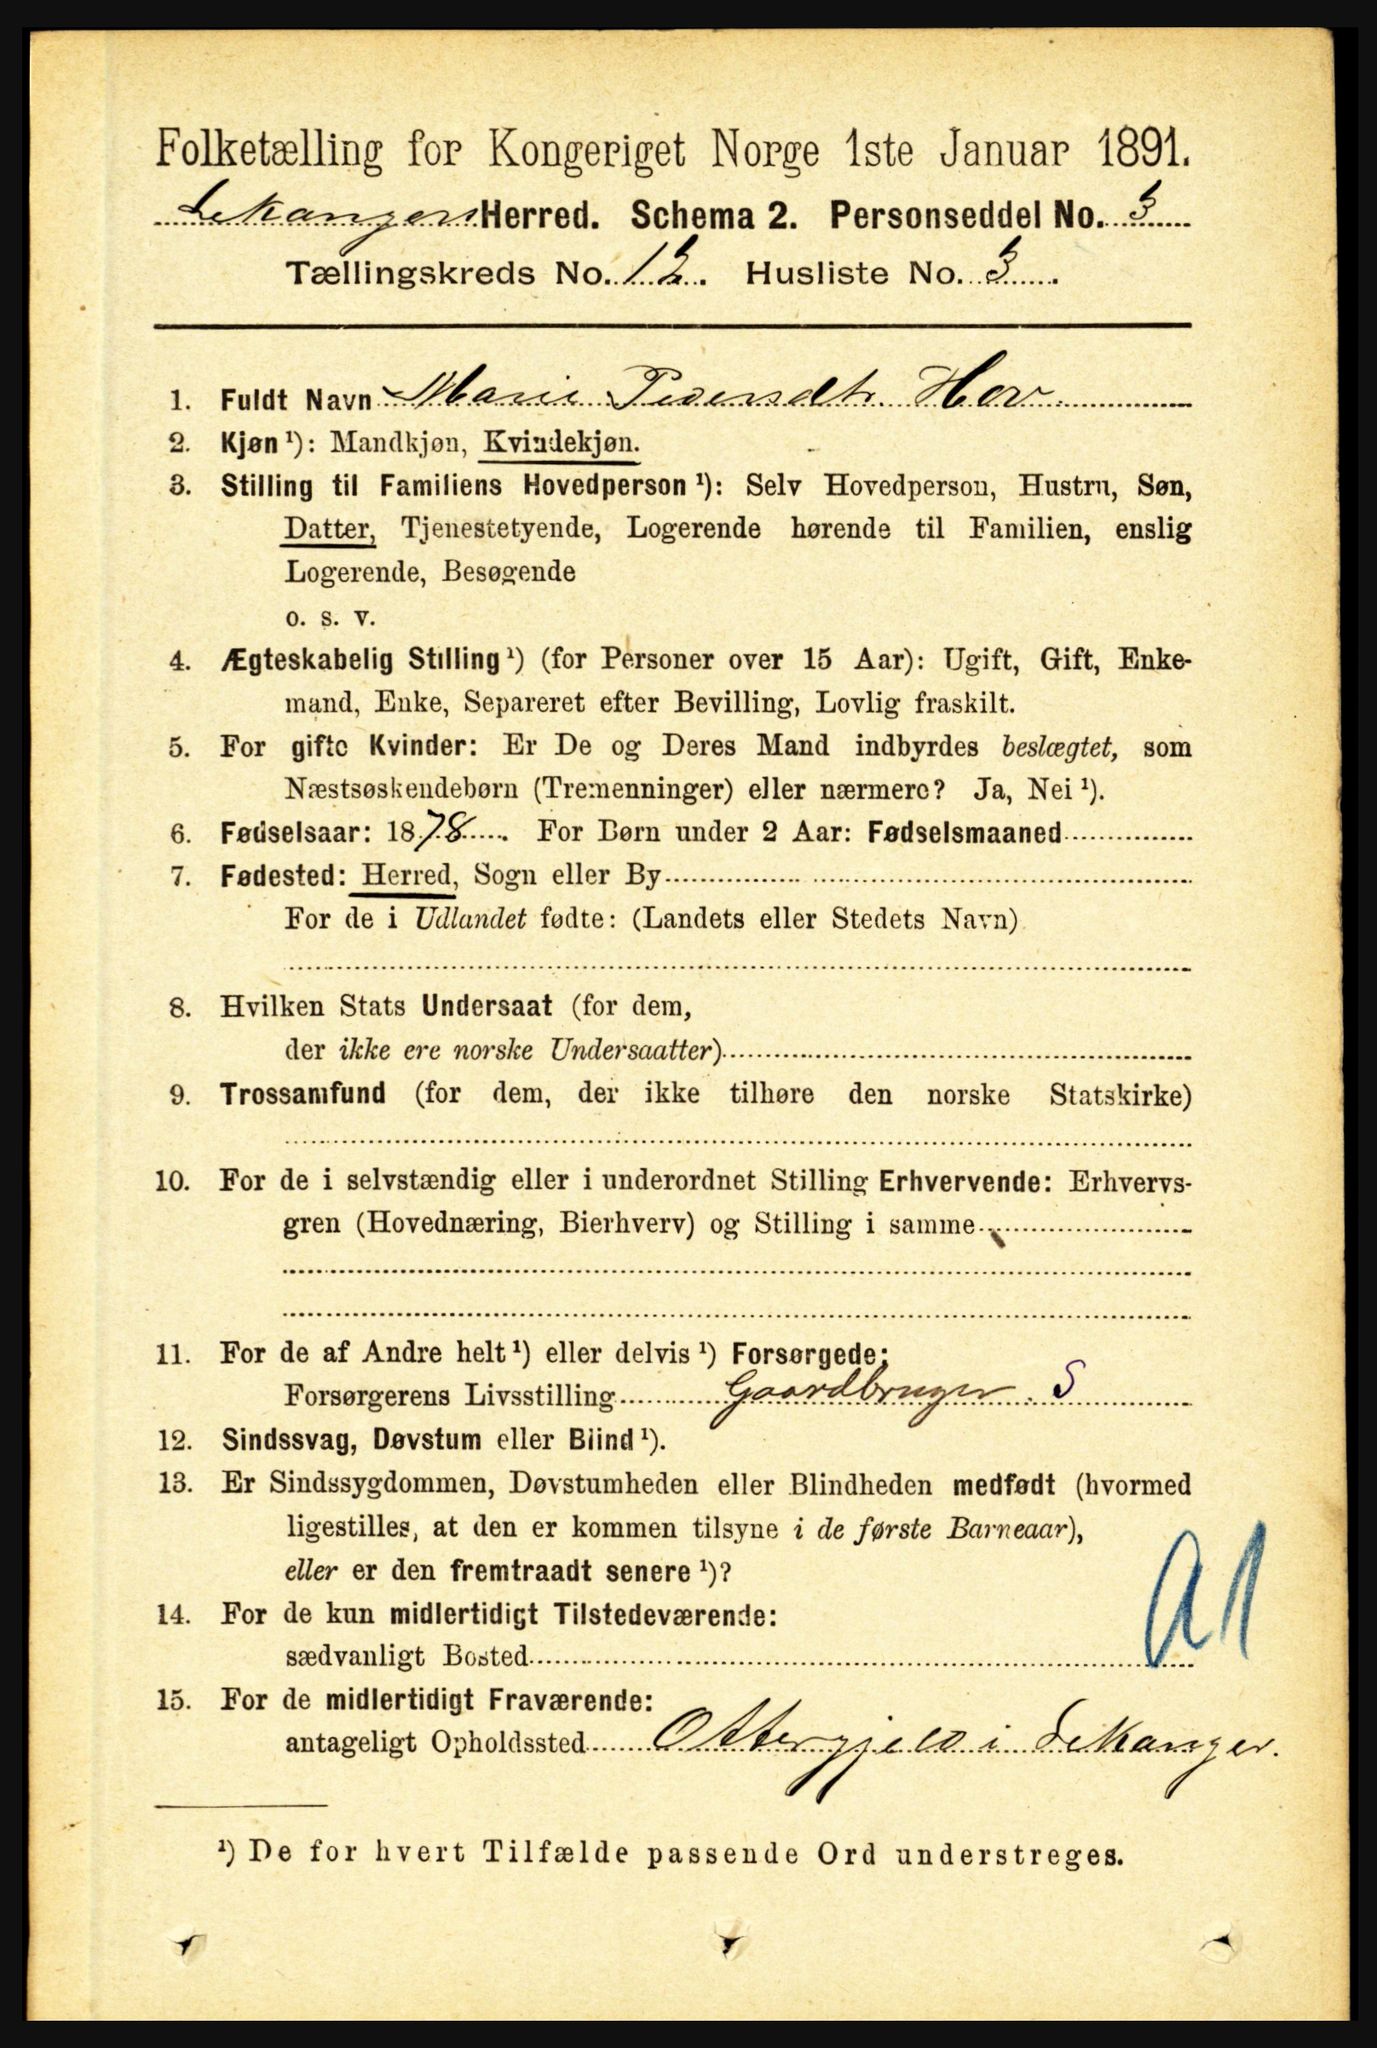 Folketælling for Kongeriget Norge 1ste Januar 1891.
Lekangers Herred. Schema 2. Personseddel No. 3
Tællingskreds No. 12. Husliste No. 3.
1. Fuldt Navn Marie Pedersdtr. Hov.
2. Kjøn¹): Mandkjøn, Kvindekjøn.
3. Stilling til Familiens Hovedperson¹): Selv Hovedperson, Hustru, Søn,
Datter, Tjenestetyende, Logerende hørende til Familien, enslig
Logerende, Besøgende
o. s. v.
4. Ægteskabelig Stilling¹) (for Personer over 15 Aar): Ugift, Gift, Enke-
mand, Enke, Separeret efter Bevilling, Lovlig fraskilt.
5. For gifte Kvinder: Er De og Deres Mand indbyrdes beslægtet, som
Næstsøskendebørn (Tremenninger) eller nærmere? Ja, Nei¹).
6. Fødselsaar: 1878. For Børn under 2 Aar: Fødselsmaaned
7. Fødested: Herred, Sogn eller By
For de i Udlandet fødte: (Landets eller Stedets Navn)
8. Hvilken Stats Undersaat (for dem,
der ikke ere norske Undersaatter)
9. Trossamfund (for dem, der ikke tilhøre den norske Statskirke)
10. For de i selvstændig eller i underordnet Stilling Erhvervende: Erhvervs-
gren (Hovednæring, Bierhverv) og Stilling i samme
11. For de af Andre helt¹) eller delvis¹) Forsørgede:
Forsørgerens Livsstilling Gaardbruger. S
12. Sindssvag, Døvstum eller Blind¹).
13. Er Sindssygdommen, Døvstumheden eller Blindheden medfødt (hvormed
ligestilles, at den er kommen tilsyne i de første Barneaar),
eller er den fremtraadt senere¹)?
14. For de kun midlertidigt Tilstedeværende:
sædvanligt Bosted
a1
15. For de midlertidigt Fraværende:
antageligt Opholdssted Ottergjeld i Lekanger.
¹) De for hvert Tilfælde passende Ord understreges.